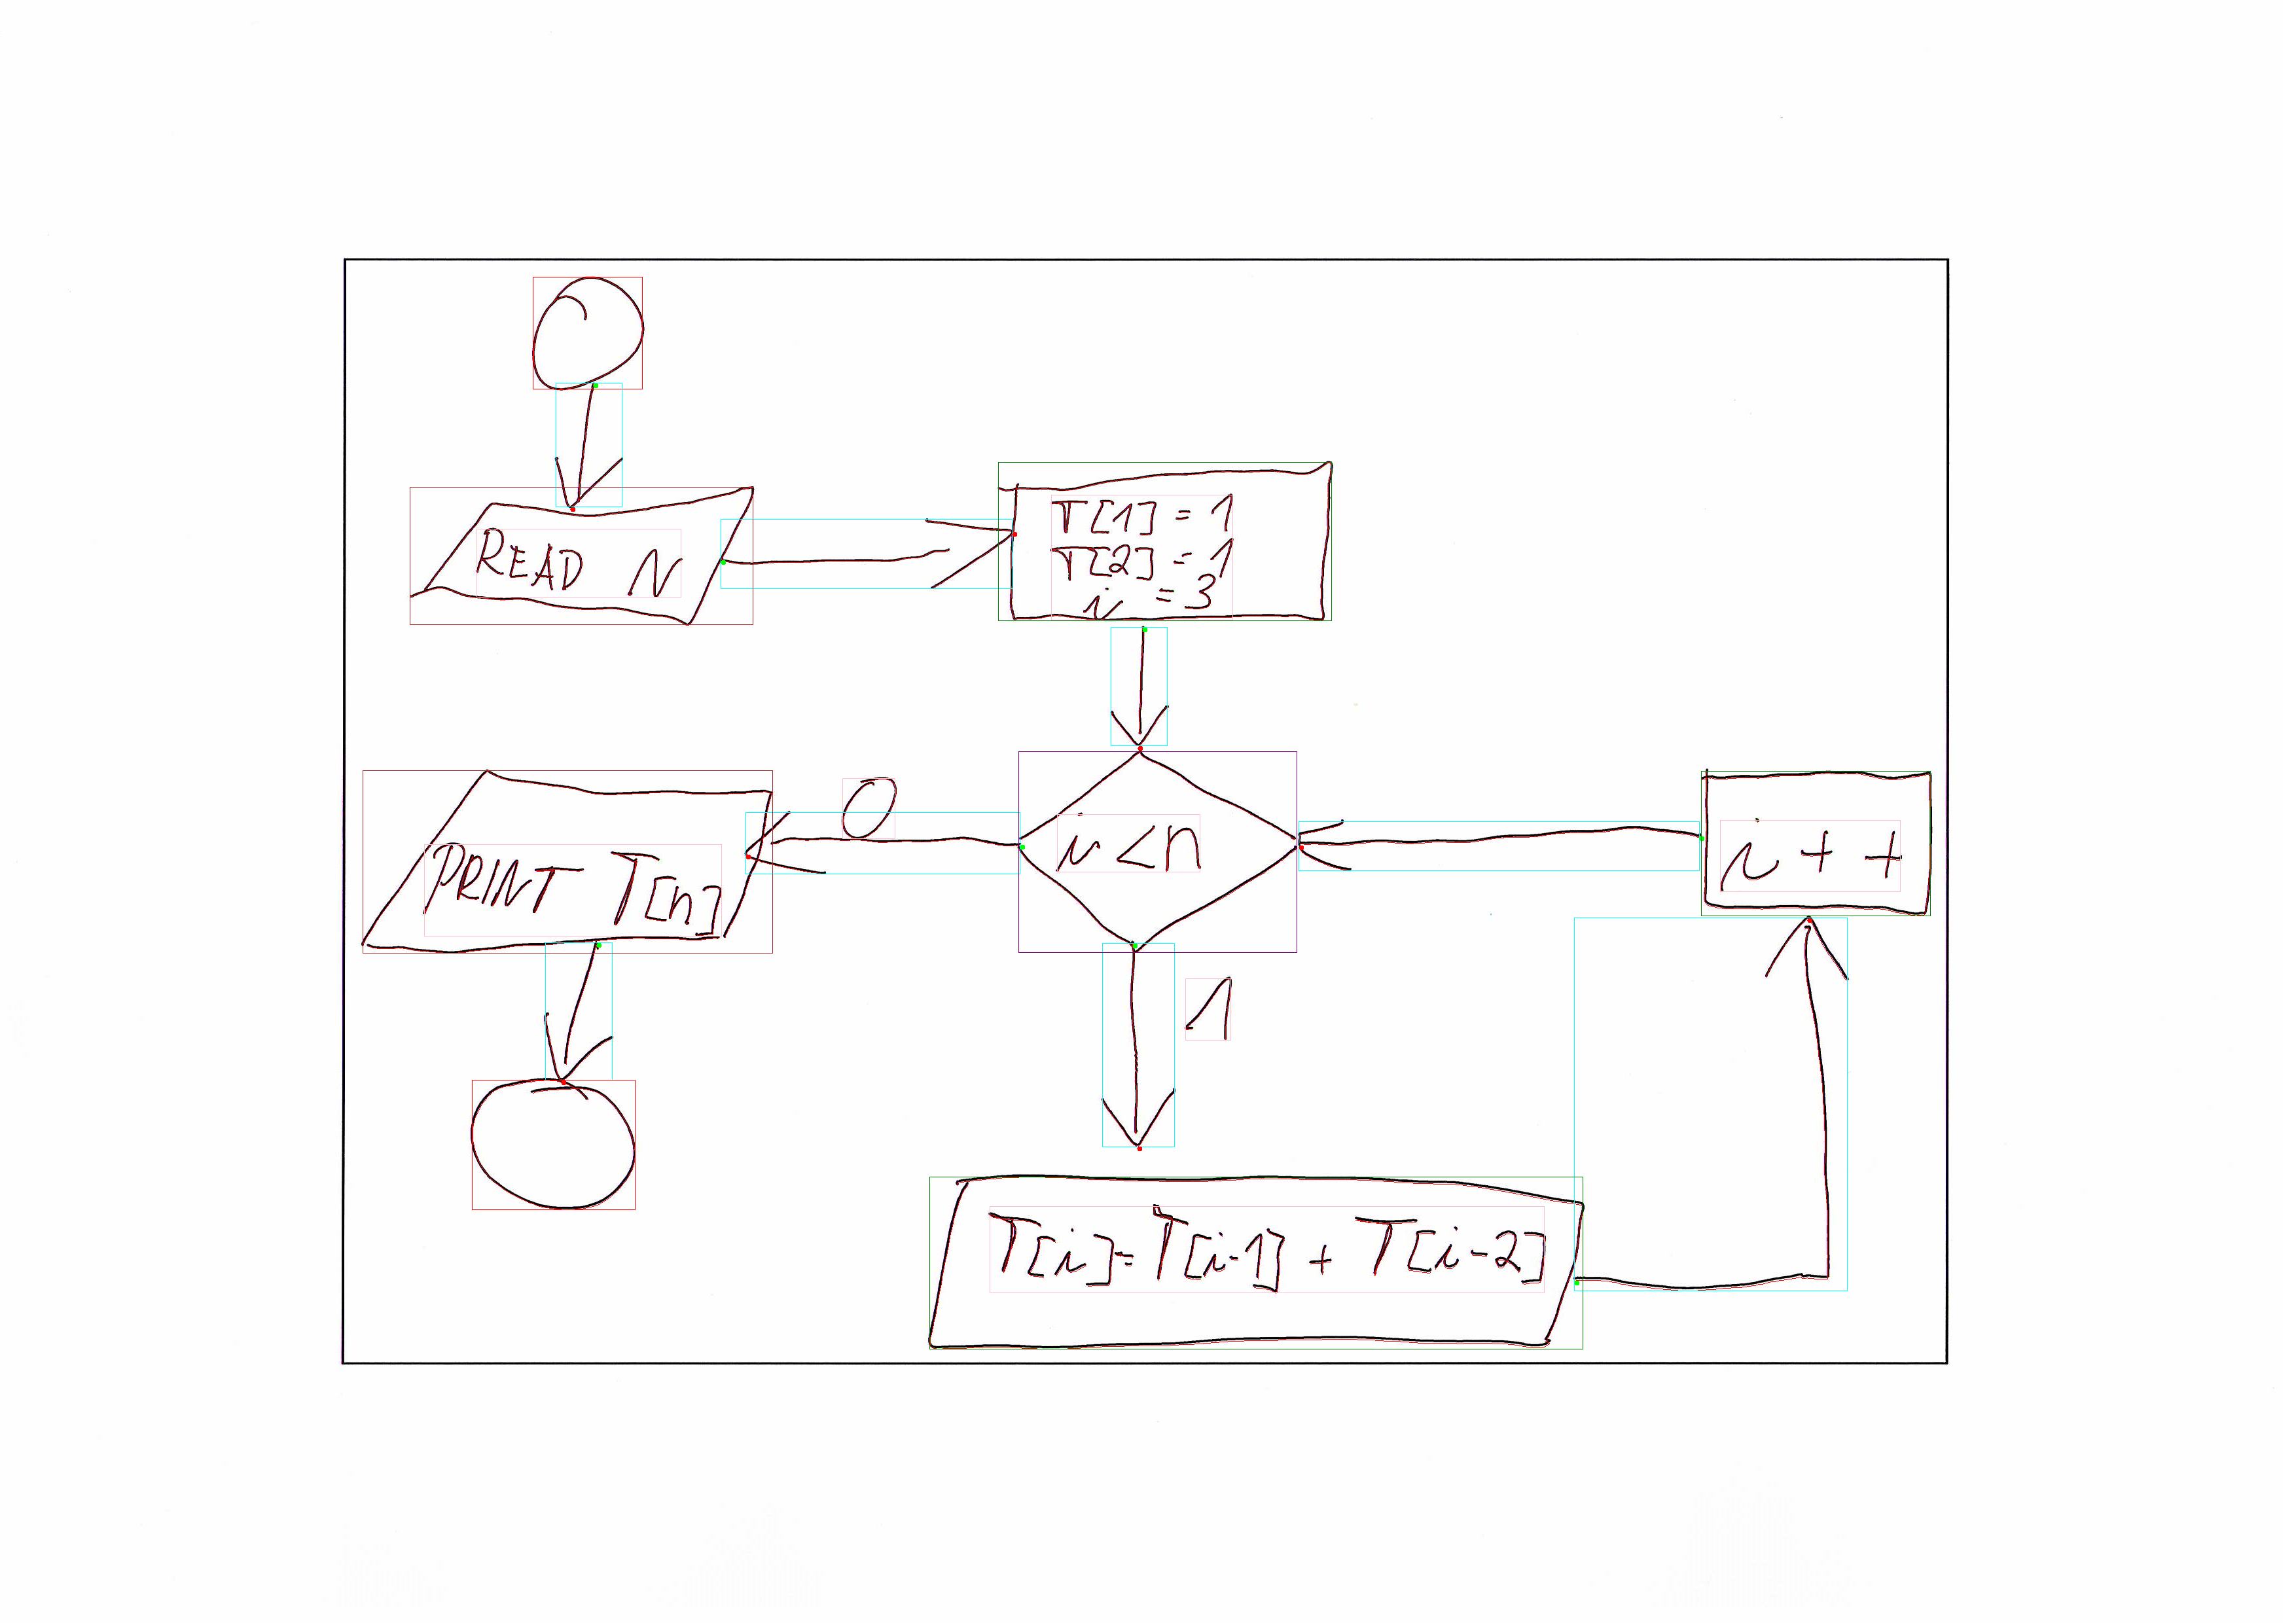 READ N
T[1] = 1
T[2] = 1
i = 3
0
i < n
i + +
PRINT T[n]
1
T[i] = T[i-1] + T[i-2]